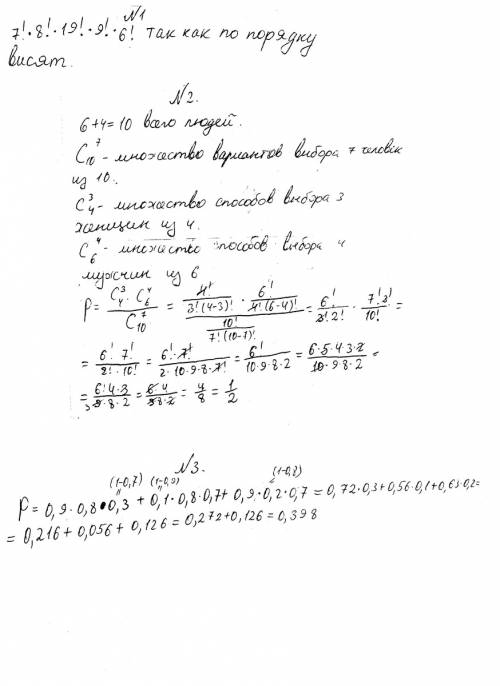 N1
7!·8!·19!·9!·6! так как по порядку
висят.
N2.
6+4=10 всего людей.
C₁₀⁷ - множество вариантов выбора 7 человек
из 10.
C₄³ - множество способов выбора 3
женщин из 4.
C₆⁴ - множество способов выбора 4
мужчин из 6
P = (C₄³·C₆⁴)/C₁₀⁷ = (4!/(3!(4-3)!) · 6!/(4!(6-4)!))/(10!/(7!(10-7)!)) = 6!/(3!2!) · 7!3!/10! =
= 6!·7!/(2!·10!) = 6!·7!/(2·10·9·8·7!) = 6!/(10·9·8·2) = 6·5·4·3·2/(10·9·8·2) =
= 6·4·3/(9·8·2) = 6·4/(3·8·2) = 4/8 = 1/2
N3.
(1-0,7) (1-0,9) (1-0,8)
P = 0,9·0,8·0,3 + 0,1·0,8·0,7 + 0,9·0,2·0,7 = 0,72·0,3+0,56·0,1+0,63·0,2=
= 0,216 + 0,056 + 0,126 = 0,272+0,126 = 0,398